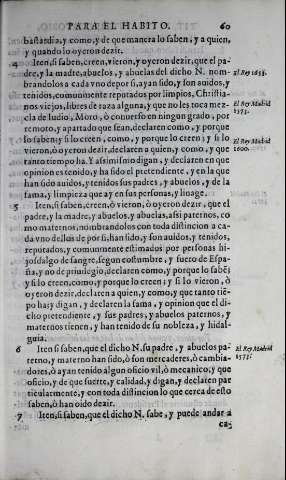 PARA EL HABITO. 60
bastardia, y como, y de que manera lo saben, y a quien,
y quando lo oyeron dezir.
4 Iten, si saben, creen, vieron, y oyeron dezir, que el pa-
dre, y la madre, abuelos, y abuelas del dicho N. nom-
brandolos a cada vno de por si, ayan sido, y son auidos, y
tenidos, comunmente reputados por limpios, Christia-
nos viejos, libres de raza alguna, y que no les toca mez-
cla de Iudio, Moro, ò conuerso en ningun grado, por
remoto, y apartado que sean, declaren como, y porque
lo saben; y si lo creen, como, y porque lo creen; y si lo
vieron, ò oyeron dezir, declaren a quien, y como, y que
tanto tiempo ha. Y assimismo digan, y declaren en que
opinion es tenido, y ha sido el pretendiente, y en la que
han sido auidos, y tenidos sus padres, y abuelos, y de la
fama, y limpieza que ay en sus personas, y linage.
5 Iten, si saben, creen, ò vieron, ò oyeron dezir, que el
padre, y la madre, abuelos, y abuelas, assi paternos, co
mo maternos, nombrandolos con toda distincion a ca-
da vno dellos de por si, han sido, y son auidos, y tenidos,
reputados, y comunmente estimados por personas hi-
josdalgo de sangre, segun costumbre, y fuero de Espa-
ña, y no de priuilegio, declaren como, y porque lo sabē;
y si lo creen, como, y porque lo creen; y si lo vieron, ò
oyeron dezir, declaren a quien, y como, y que tanto tiē-
po ha; y digan, y declaren la fama, y opinion que el di-
cho pretendiente, y sus padres, y abuelos paternos, y
maternos tienen, y han tenido de su nobleza, y hidal-
guia.
6 Iten si saben, que el dicho N. su padre, y abuelos pa-
terno, y materno han sido, ò son mercaderes, ò cambia-
dores, ò ayan tenido algun oficio vil, ò mecanico, y que
oficio, y de que suerte, y calidad, y digan, y declaren par
ticularmente, y con toda distincion lo que cerca de esto
saben, ò han oido dezir.
7 Iten, si saben, que el dicho N. sabe, y puede andar a
ca-
El Rey 1653.
El Rey Madrid
1573.
El Rey Madrid
1600.
El Rey Madrid
1573.